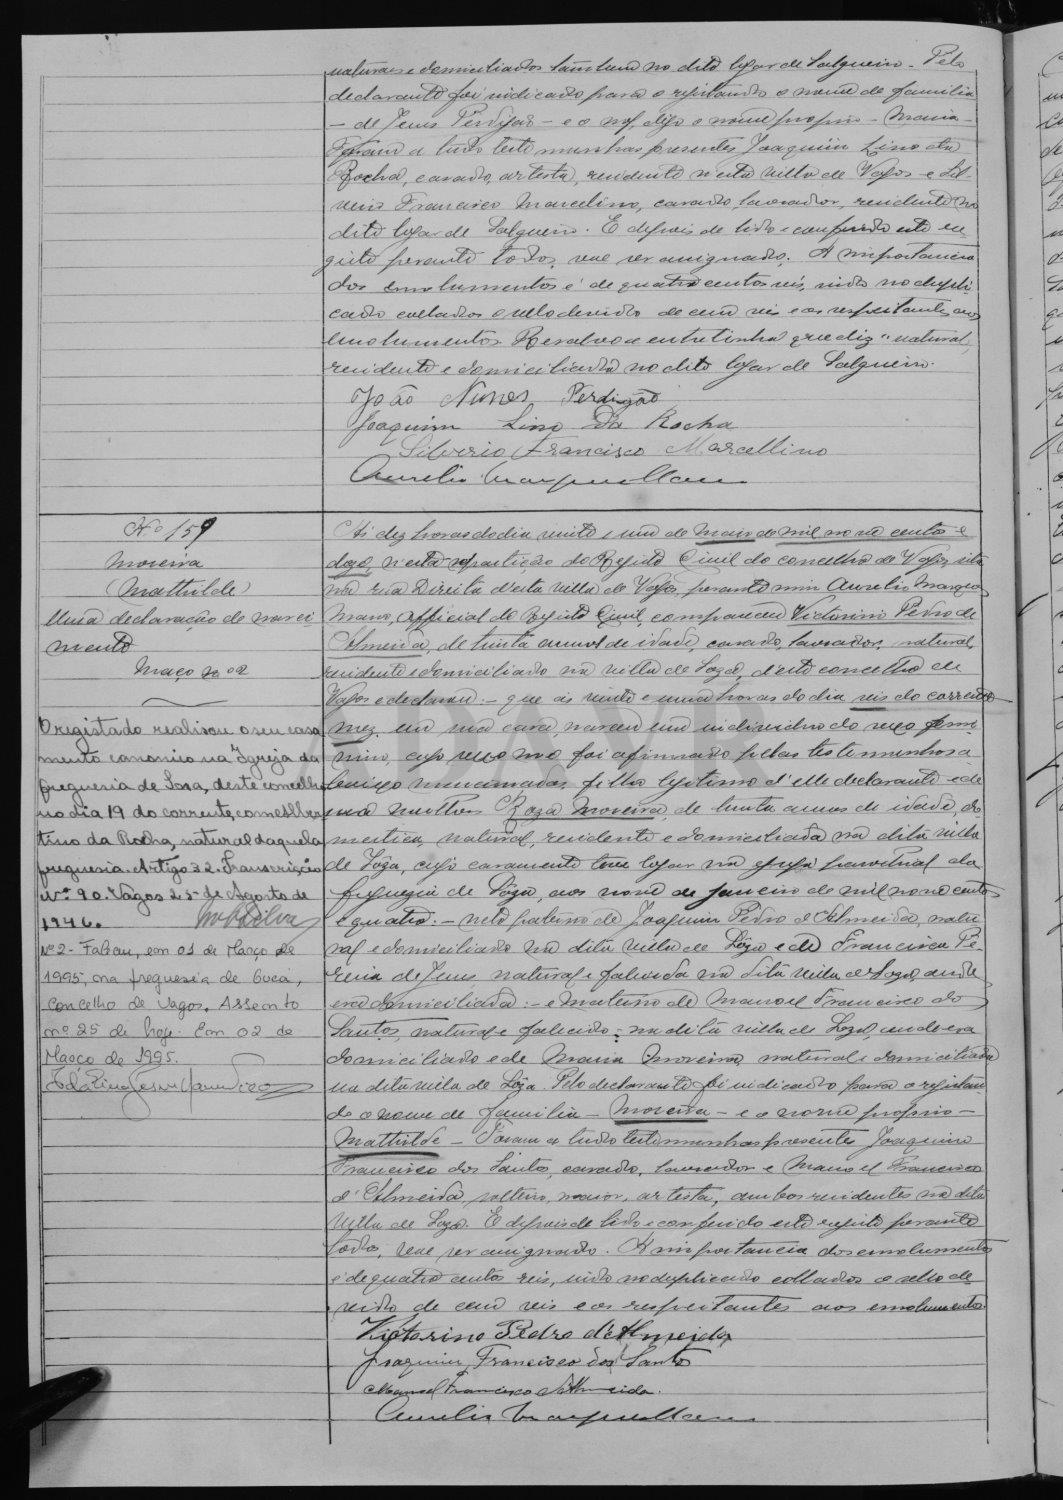 naturaes e domiciliados tambem no dito logar de Salgueiro. Pelo
declarante foi indicado para o registando o nome de familia
— de Jesus Perdigão — e o nof, digo o nome proprio — Maria —
Foram a tudo testemunhas presentes Joaquim Lino da
Rocha, casado, artista, residente n'esta villa de Vagos e Sil-
verio Francisco Marcelino, casado, lavrador, residente no
dito logar de Salgueiro. E depois de lido e conferido este re-
gisto perante todos, vae ser assignado. A importancia
dos emolumentos é de quatro centos réis, indo no dupli-
cado collados o sello devido de cem réis e os respeitantes aos
emolumentos. Resalvo a entrelinha que diz "natural,
residente e domiciliada no dito logar de Salgueiro.
João Nunes Perdigão
Joaquim Lino da Rocha
Silverio Francisco Marcellino
Aurelio Marques Mano
Nº 159
Moreira
(Mathilde)
Uma declaração de nasci-
mento
Maço nº 2
O registado realisou o seu casa
mento canonico na Igreja da
freguesia de Sosa, deste concelho
no dia 19 do corrente, com Alber
tino da Rocha, natural daquela
freguesia. Artigo 32. Transcrição
Nº 90. Vagos 25 de Agosto de
1946.
Nº 2 - Faleceu, em 01 de Março de
1995, na freguesia de Ouca,
concelho de Vagos. Assento
nº 25 de hoje. Em 02 de
Março de 1995.
Ás dez horas do dia vinte e um de Maio de mil nove centos e
doze, n'esta repartição do Registo Civil do concelho de Vagos, sita
na rua Direita d'esta villa de Vagos, perante mim Aurelio Marques
Mano, official do Registo Civil, compareceu Victorino Pedro de
Almeida, de trinta annos de idade, casado, lavrador, natural,
residente e domiciliado na villa de Soza, d'este concelho de
Vagos e declarou: — que ás vinte e uma horas do dia seis do corrente
mez, em sua casa, nasceu um individuo do sexo femi
nino, cujo sexo me foi afirmado pelas testemunhas a
baixo mencionadas, filho legitimo d'elle declarante e de
sua mulher Roza Moreira, de trinta annos de idade, do
mestica, natural, residente e domiciliada na dita villa
de Soza, cujo casamento teve logar na egreja parochial da
freguezia de Soza, aos nove de Janeiro de mil nove centos
e quatro: — neto paterno de Joaquim Pedro d'Almeida, natu
ral e domiciliado na dita villa de Soza e de Francisca Pe-
reira de Jesus, natural e falecida na dita villa de Soza, onde
era domiciliada: — e materno de Manoel Francisco dos
Santos, natural e falecido: na dita villa de Soza, onde era
domiciliado e de Maria Moreira, natural e domiciliada
na dita villa de Soza. Pelo declarante foi indicado para o registan
do o nome de familia — Moreira — e o nome proprio —
Mathilde — Foram a tudo testemunhas presentes Joaquim
Francisco dos Santos, casado, lavrador e Manoel Francisco
d'Almeida, solteiro, maior, artista, ambos residentes na dita
villa de Soza. E depois de lido e conferido este registo perante
todos, vae ser assignado. A importancia dos emolumentos
é de quatro centos reis, indo no duplicado collados o sello de-
vido de cem reis e os respeitantes aos emolumentos.
Victorino Pedro d'Almeida
Joaquim Francisco dos Santos
Manoel Francisco d'Almeida.
Aurelio Marques Mano